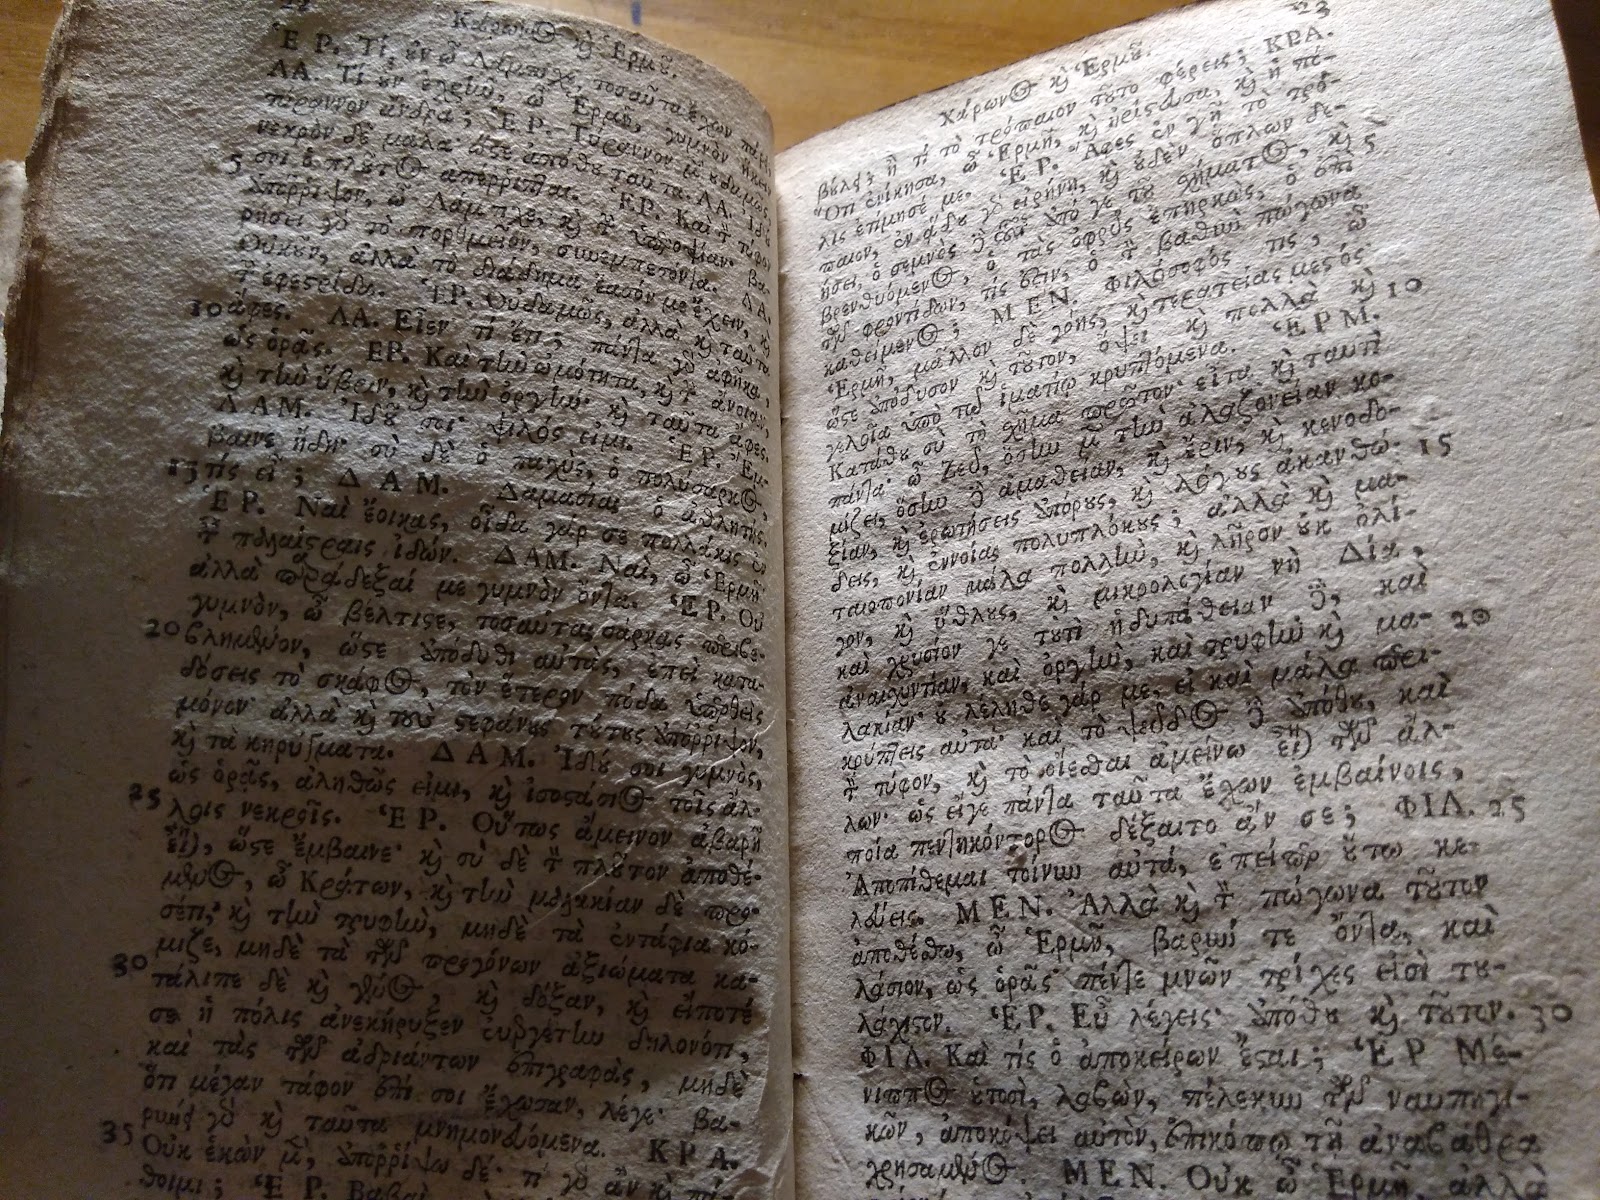 Χάρωνος καὶ Ἑρμοῦ.
ἙΡ. Τί οὖν ὦ Λάμπιχε, τοσαῦτα ἔχων πάρει
ΛΑ. Τί οὖν ἐχρῆν, ὦ Ἑρμῆ, γυμνὸν ἥκειν
τύραννον ἄνδρα; ἙΡ. Τύραννον μὲν οὐδαμῶς,
νεκρὸν δὲ μάλα ὥστε ἀπόθου ταῦτα. ΛΑ. Ἰδού
5 σοι ὁ πλοῦτος ἀπέρριπται. ἙΡ. Καὶ τὸν τύφον
ἀπόρριψον, ὦ Λάμπιχε, καὶ τὴν ὑπεροψίαν· βα-
ρήσει γὰρ τὸ πορθμεῖον, συνεμπεσόντα. ΛΑ.
Οὐκοῦν, ἀλλὰ τὸ διάδημα ἔασόν με ἔχειν, καὶ
τὴν ἐφεστρίδα. ἙΡ. Οὐδαμῶς, ἀλλὰ καὶ ταῦτα
10 ἄφες. ΛΑ. Εἶεν τί ἔτι; πάντα γὰρ ἀφῆκα,
ὡς ὁρᾷς. ΕΡ. Καὶ τὴν ὠμότητα, καὶ τὴν ἄνοιαν,
καὶ τὴν ὕβριν, καὶ τὴν ὀργήν· καὶ ταῦτα ἄφες.
ΛΑΜ. Ἰδού σοι· ψιλός εἰμι. ἙΡ. Ἔμ-
βαινε ἤδη· σὺ δὲ ὁ παχὺς, ὁ πολύσαρκος,
15 τίς εἶ; ΔΑΜ. Δαμασίας ὁ ἀθλητής.
ἙΡ. Ναὶ ἔοικας, οἶδα γάρ σε πολλάκις ἐν
ταῖς παλαίστραις ἰδών. ΔΑΜ. Ναὶ, ὦ Ἑρμῆ
ἀλλὰ παράδεξαί με γυμνὸν ὄντα. ἙΡ. Οὐ
γυμνὸν, ὦ βέλτιστε, τοσαύτας σάρκας περιβε-
20 βλημένον, ὥστε ἀπόδυθι αὐτὰς, ἐπεὶ κατα-
δύσεις τὸ σκάφος, τὸν ἕτερον πόδα ὑπερθεὶς
μόνον· ἀλλὰ καὶ τοὺς στεφάνους τούτους ἀπόρριψον,
καὶ τὰ κηρύγματα. ΔΑΜ. Ἰδού σοι γυμνὸς,
ὡς ὁρᾷς, ἀληθῶς εἰμι, καὶ ἰσοστάσιος τοῖς ἄλ-
25 λοις νεκροῖς. ἙΡ. Οὕτως ἄμεινον ἀβαρῆ
εἶναι, ὥστε ἔμβαινε· καὶ σὺ δὲ τὸν πλοῦτον ἀποθέ-
μενος, ὦ Κράτων, καὶ τὴν μαλακίαν δὲ προσ-
σέτι, καὶ τὴν τρυφὴν, μηδὲ τὰ ἐντάφια κό-
μιζε, μηδὲ τὰ τῶν προγόνων ἀξιώματα κα-
30 τάλιπε δὲ καὶ γένος, καὶ δόξαν, καὶ εἴποτέ
σε ἡ πόλις ἀνεκήρυξεν εὐεργέτην δηλονότι,
καὶ τὰς τῶν ἀδριάντων ἐπιγραφὰς, μηδὲ
ὅτι μέγαν τάφον ἐπί σοι ἔχωσαν, λέγε· βα-
ρύνει γὰρ καὶ ταῦτα μνημονευόμενα. ΚΡΑ.
35 Οὐκ ἑκὼν μὲν, ἀπορρίψω δέ· τί γὰρ ἂν καὶ πά-
θοιμι; ἙΡ. Βαβαὶ
23
Χάρωνος καὶ Ἑρμοῦ.
βούλει; ἢ τί τὸ τρόπαιον τοῦτο φέρεις; ΚΡΑ.
Ὅτι ἐνίκησα, ὦ Ἑρμῆ, καὶ ἠρίστευσα, καὶ ἡ πό-
λις ἐτίμησέ με. ἙΡ. Ἄφες ἐν γῇ τὸ τρό-
παιον, ἐν ᾅδου γὰρ εἰρήνη, καὶ οὐδὲν ὅπλων δε-
ήσει, ὁ σεμνὸς δὲ οὗτος ἀπό γε τοῦ σχήματος, καὶ 5
βρενθυόμενος, ὁ τὰς ὀφρῦς ἐπηρκὼς, ὁ ἐπὶ
τῶν φροντίδων, τίς ἐστιν, ὁ τὸν βαθὺν πώγωνα
καθειμένος; ΜΕΝ. Φιλόσοφός τις, ὦ
Ἑρμῆ, μᾶλλον δὲ γόης, καὶ τερατείας μεστός·
ὥστε ἀπόδυσον καὶ τοῦτον, ὄψει γὰρ πολλὰ καὶ 10
γελοῖα ὑπὸ τῷ ἱματίῳ κρυπτόμενα. ἙΡΜ.
Κατάθου σὺ τὸ σχῆμα πρῶτον· εἶτα καὶ ταυτὶ
πάντα· ὦ Ζεῦ, ὅσην μὲν τὴν ἀλαζονείαν κο-
μίζει, ὅσην δὲ ἀμαθείαν, καὶ ἔριν, καὶ κενοδο-
ξίαν, καὶ ἐρωτήσεις ἀπόρους, καὶ λόγους ἀκανθώ- 15
δεις, καὶ ἐννοίας πολυπλόκους; ἀλλὰ καὶ μα-
ταιοπονίαν μάλα πολλὴν, καὶ λῆρον οὐκ ὀλί-
γον, καὶ ὕθλους, καὶ μικρολογίαν νὴ Δία,
καὶ χρυσίον γε τουτὶ ἡδυπάθειαν δὲ, καὶ
ἀναισχυντίαν, καὶ ὀργὴν, καὶ τρυφὴν καὶ μα- 20
λακίαν· οὐ λέληθε γάρ με, εἰ καὶ μάλα περι-
κρύπτεις αὐτά· καὶ τὸ ψεῦδος δὲ ἀπόθου, καὶ
τὸν τύφον, καὶ τὸ οἴεσθαι ἀμείνω εἶναι τῶν ἄλ-
λων· ὡς εἴγε πάντα ταῦτα ἔχων ἐμβαίνοις,
ποία πεντηκόντορος δέξαιτο ἄν σε; ΦΙΛ. 25
Ἀποτίθεμαι τοίνυν αὐτά, ἐπείπερ οὕτω κε-
λεύεις. ΜΕΝ. Ἀλλὰ καὶ τὸν πώγωνα τοῦτον
ἀποθέσθω, ὦ Ἑρμῆ, βαρύν τε ὄντα, καὶ
λάσιον, ὡς ὁρᾷς· πέντε μνῶν τρίχες εἰσὶ τοὐ-
λάχιστον. ἙΡ. Εὖ λέγεις· ἀπόθου καὶ τοῦτον. 30
ΦΙΛ. Καὶ τίς ὁ ἀποκείρων ἔσται; ἙΡ Μέ-
νιππος οὑτοσὶ, λαβὼν, πέλεκυν τῶν ναυπηγι-
κῶν, ἀποκόψει αὐτὸν, ἐπικόπῳ τῇ ἀναβάθρα
χρησάμενος. ΜΕΝ. Οὐκ ὦ Ἑρμῆ, ἀλλὰ